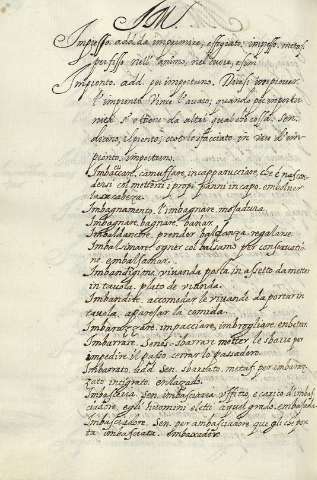 Impresso. add. da imprimere, effigiato, impresso, metaf.
per fisso nell'animo, nel cuore,
Impronto. add. per importuno.
l'impronto vince l'avaro; quando per importu
nità s'ottien da altri qualche cosa.
lo sfacciato
pronto, importuno.
Imbaccare, camuffare, incappucciare, che è nascon
dersi col mettersi i propri panni in capo.
la cabeza.
Imbagnamento, l'imbagnare, mojadura.
Imbagnare, bagnare, bañar.
Imbaldanzire, prender baldanza, regalarse.
Imbalsimare, ogner col balsamo per conservati
ne, embalsamar.
Imbandigione, vivanda posta in assetto da metter
in tavola, plato de vianda.
Imbandire, accomodar le vivande da portar in
tavola, aparejar la comida.
Imbarazzare, impacciare, imbrogliare,
Imbarrare. Sen. sbarrare, metter le sbarre per
impedire il passo, cerrar lo passadero.
Imbarrato. add. Sen. sbarrato, metaf. per imbaraz
zato, intrigato, enlazado.
Imbasciaria. Sen. imbasciatura, uffitio, e carico d'imba
sciadore, e gli huomini eletti a quel grado, embaxada
Imbasciadore. Sen. per ambasciadore, que gli che por
ta imbasciata, embaxador